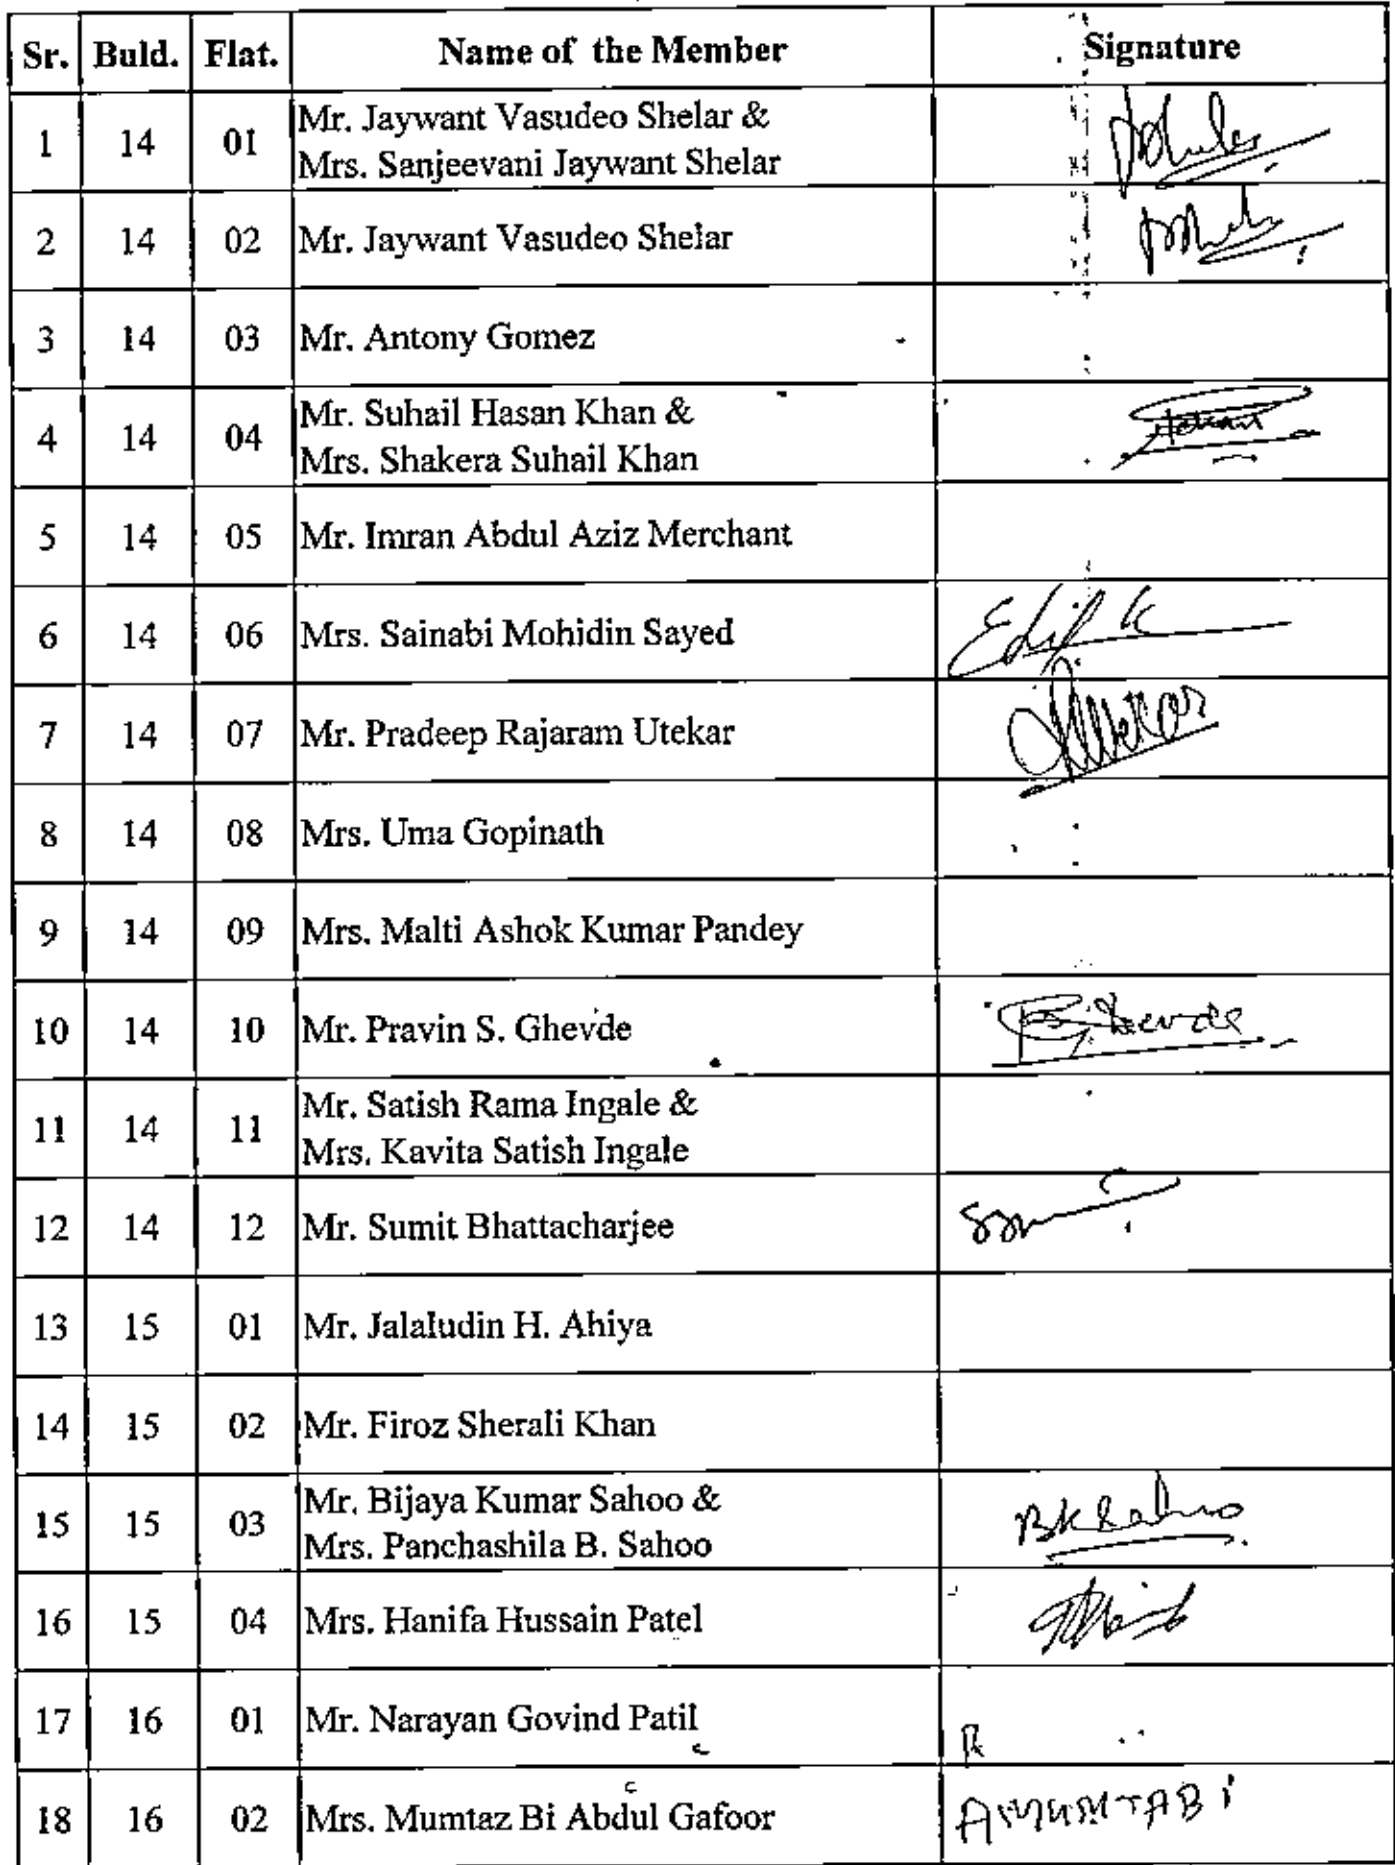 Sr. Buld. Flat. Name of the Member Signature
1 14 01 Mr. Jaywant Vasudeo Shelar &
Mrs. Sanjeevani Jaywant Shelar
2 14 02 Mr. Jaywant Vasudeo Shelar
3 14 03 Mr. Antony Gomez
4 14 04 Mr. Suhail Hasan Khan &
Mrs. Shakera Suhail Khan
5 14 05 Mr. Imran Abdul Aziz Merchant
6 14 06 Mrs. Sainabi Mohidin Sayed
7 14 07 Mr. Pradeep Rajaram Utekar
8 14 08 Mrs. Uma Gopinath
9 14 09 Mrs. Malti Ashok Kumar Pandey
10 14 10 Mr. Pravin S. Ghevde
11 14 11 Mr. Satish Rama Ingale &
Mrs. Kavita Satish Ingale
12 14 12 Mr. Sumit Bhattacharjee
13 15 01 Mr. Jalaludin H. Ahiya
14 15 02 Mr. Firoz Sherali Khan
15 15 03 Mr. Bijaya Kumar Sahoo & BK Sahoo
Mrs. Panchashila B. Sahoo
16 15 04 Mrs. Hanifa Hussain Patel
17 16 01 Mr. Narayan Govind Patil
18 16 02 Mrs. Mumtaz Bi Abdul Gafoor